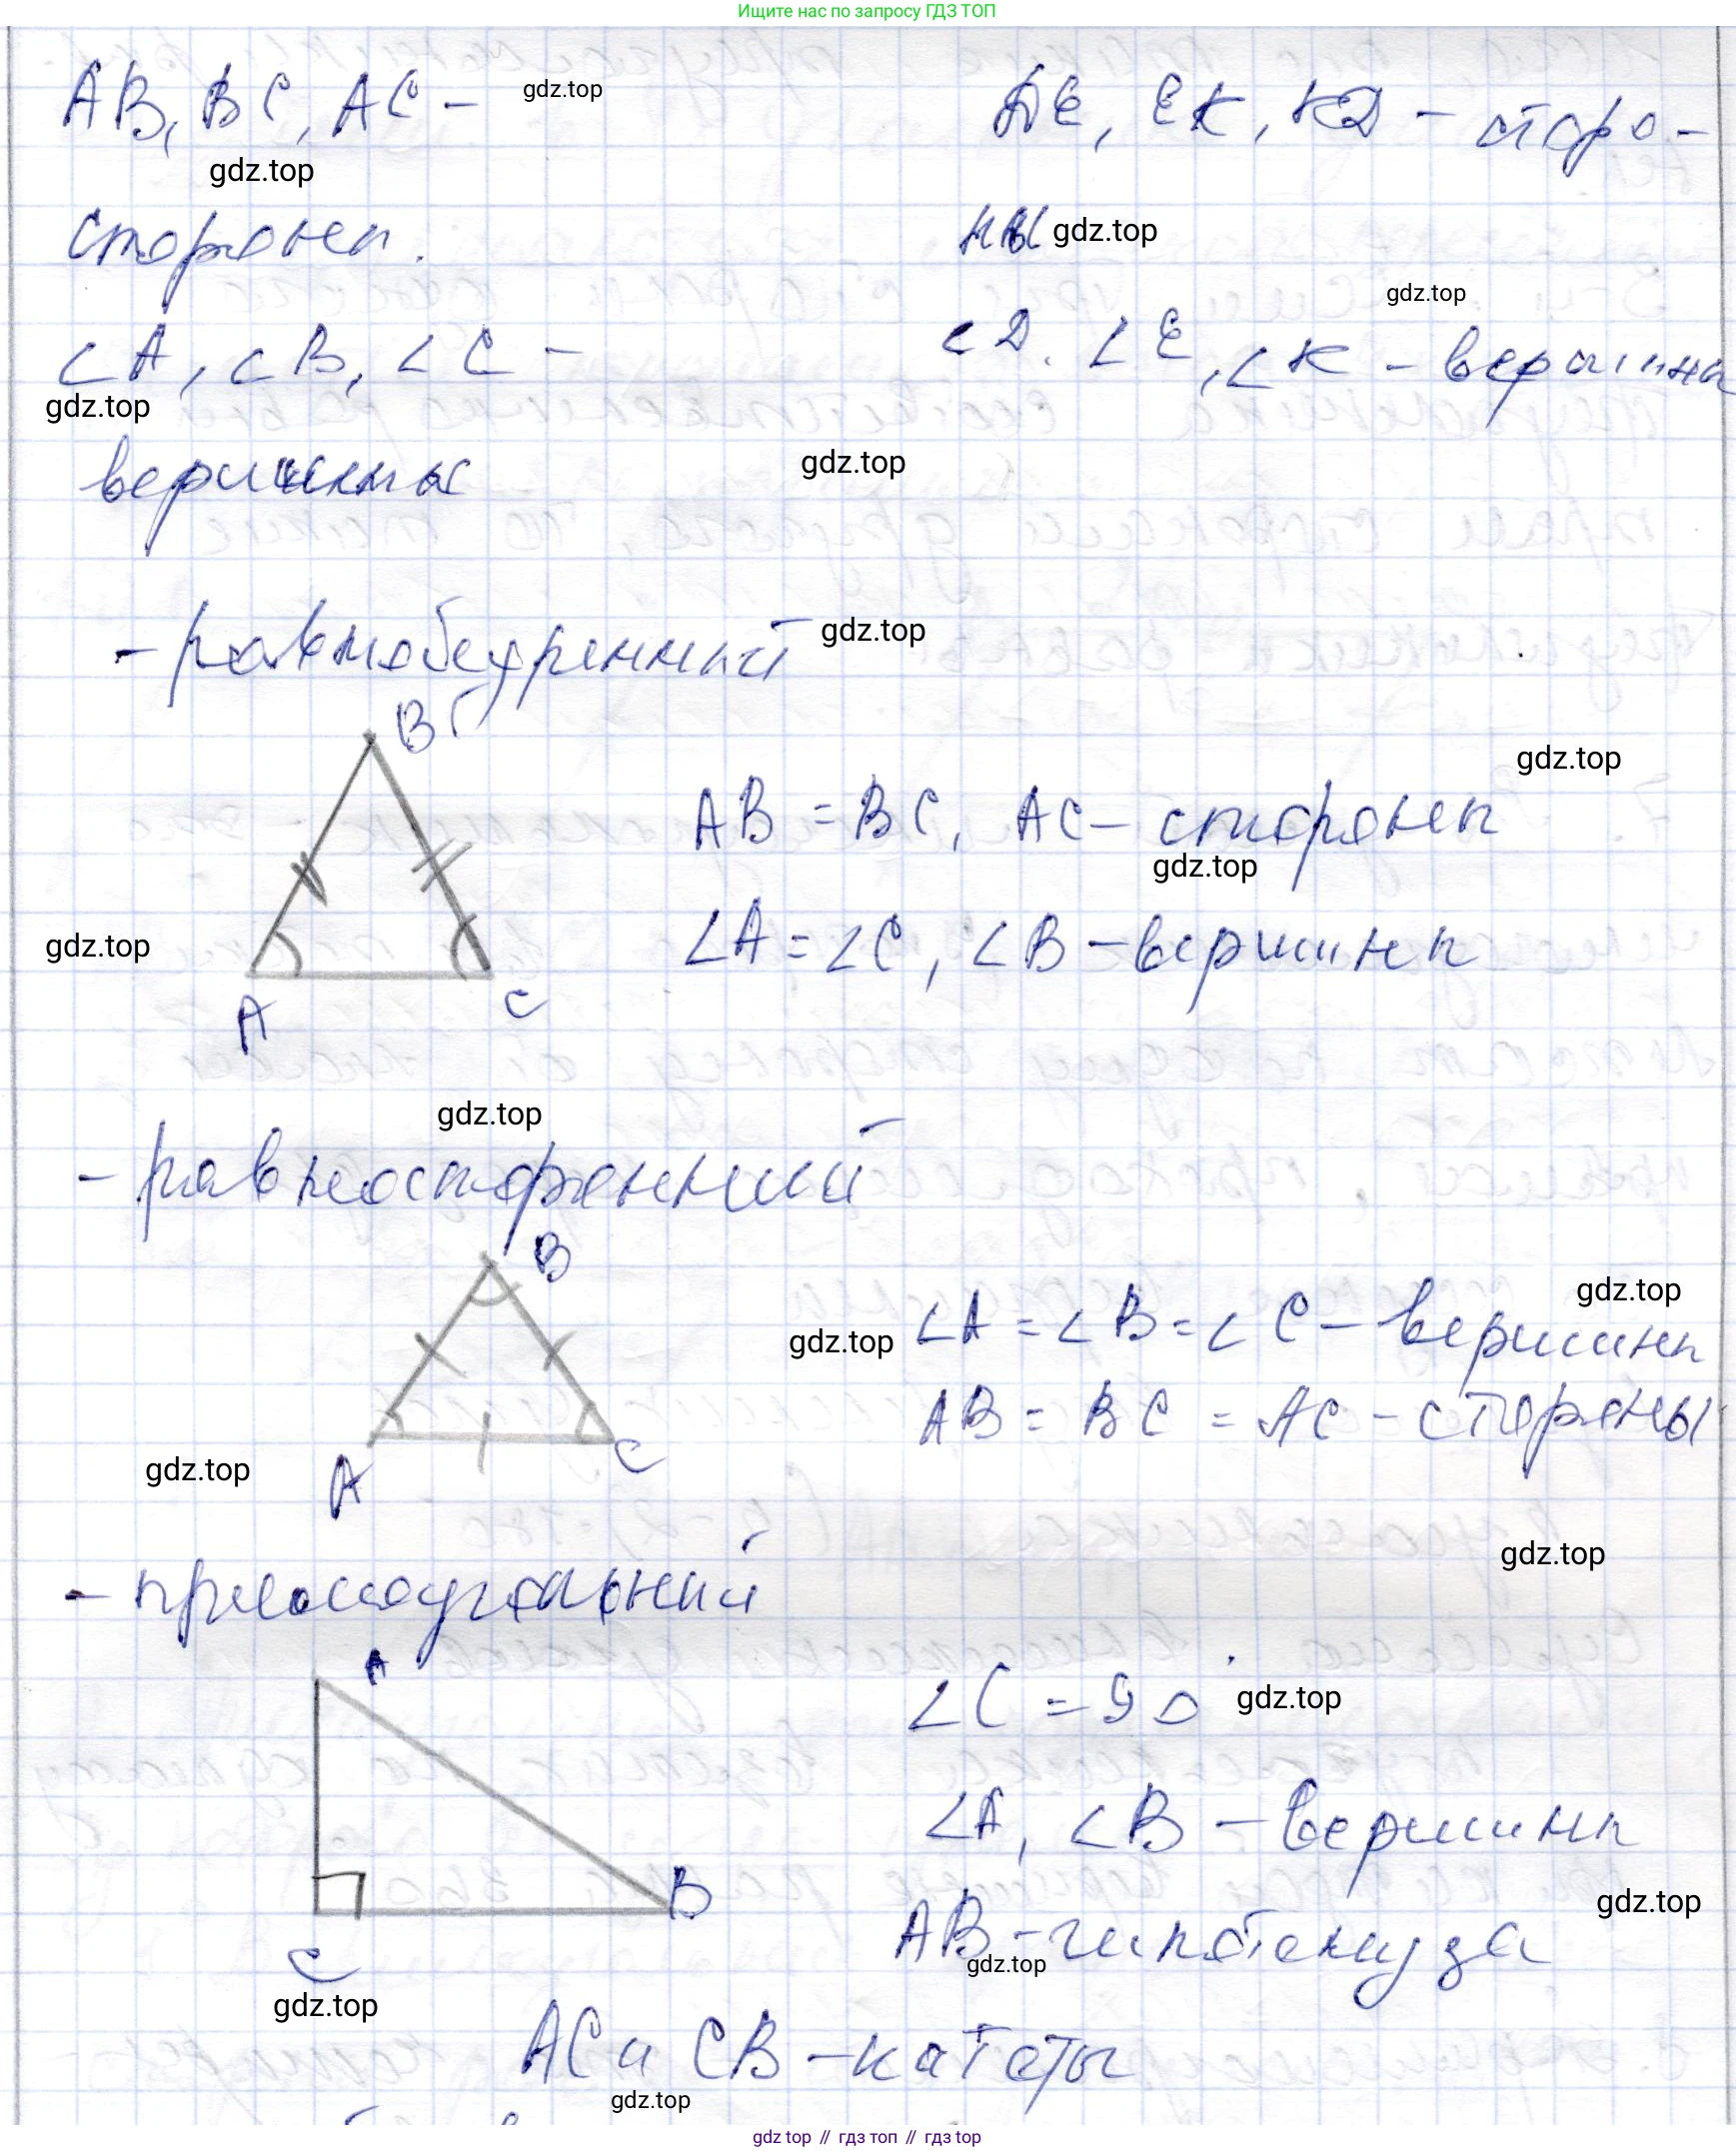 Ищите нас по запросу ГДЗ ТОП
AB, BC, AC – gdz.top
gdz.top
стороны.
∠A, ∠B, ∠C –
gdz.top
вершины
DE, EK, KD – сторо-
ны gdz.top
gdz.top
∠D, ∠E, ∠K – вершина
gdz.top
– равнобедренный gdz.top
B
gdz.top
AB = BC, AC – стороны
gdz.top
∠A = ∠C, ∠B – вершины
gdz.top
A C
gdz.top
– равносторонний
B
gdz.top
gdz.top ∠A = ∠B = ∠C – вершины
AB = BC = AC – стороны
gdz.top
A C
gdz.top
– прямоугольный
A
∠C = 90° gdz.top
∠A, ∠B – вершины
B
gdz.top
AB – гипотенуза
gdz.top
C
gdz.top
AC и CB – катеты
gdz.top
gdz top // гдз топ // гдз top